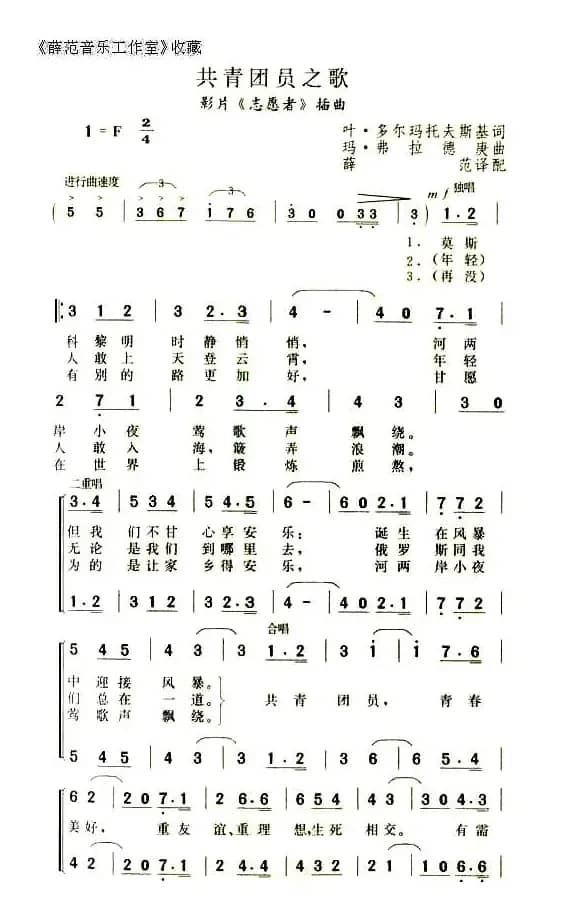 《薛范音乐工作室》收藏
共青团员之歌
影片《志愿者》插曲
1=F 2/4
叶·多尔玛托夫斯基词
玛·弗拉德庚曲
薛 范译配
进行曲速度
mf 独唱
(5 5 | 3 6 7 1 7 6 | 3 0 0 3 3 | 3) 1·2 |
1. 莫斯
2.(年轻)
3.(再没)
3 1 2 | 3 2·3 | 4 - | 4 0 7·1 |
科黎明 时静悄悄, 河两
人敢上 天登云霄, 年轻
有别的 路更加好, 甘愿
2 7 1 | 2 3·4 | 4 3 | 3 0 |
岸小夜 莺歌声飘绕。
人敢入 海,簸弄浪潮。
在世界 上锻炼煎熬,
二重唱
3·4 | 5 4 5 | 5 4·5 | 6 - | 6 0 2·1 | 7 7 2 |
但我们不甘心享安乐; 诞生在风暴
无论是我们到哪里去, 俄罗斯同我
为的是让家乡得安乐, 河两岸小夜
1·2 | 3 1 2 | 3 2·3 | 4 - | 4 0 2·1 | 7 7 2 |
合唱
5 4 5 | 4 3 | 3 1·2 | 3 i | i 7·6 |
中迎接风暴。
们总在一道。 共青团员, 青春
莺歌声飘绕。
5 4 5 | 4 3 | 3 1·2 | 3 6 | 6 5·4 |
6 2 | 2 0 7·1 | 2 6·6 | 6 5 4 | 4 3 | 3 0 2·1 |
美好, 重友谊、重理想,生死相交。 有需
4 2 | 2 0 7·1 | 2 2·2 | 2 7 2 | 2 1 | 1 0 6·6 |